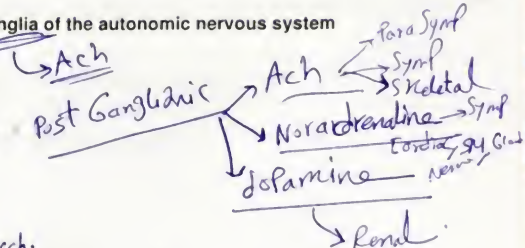 nglia of the autonomic nervous system
Ach
Post Ganglionic
Ach
Para Symp
Symp
Skeletal
Noradrenaline
Symp
Cordia, SM, Gland
Nerves
dopamine
Renal.